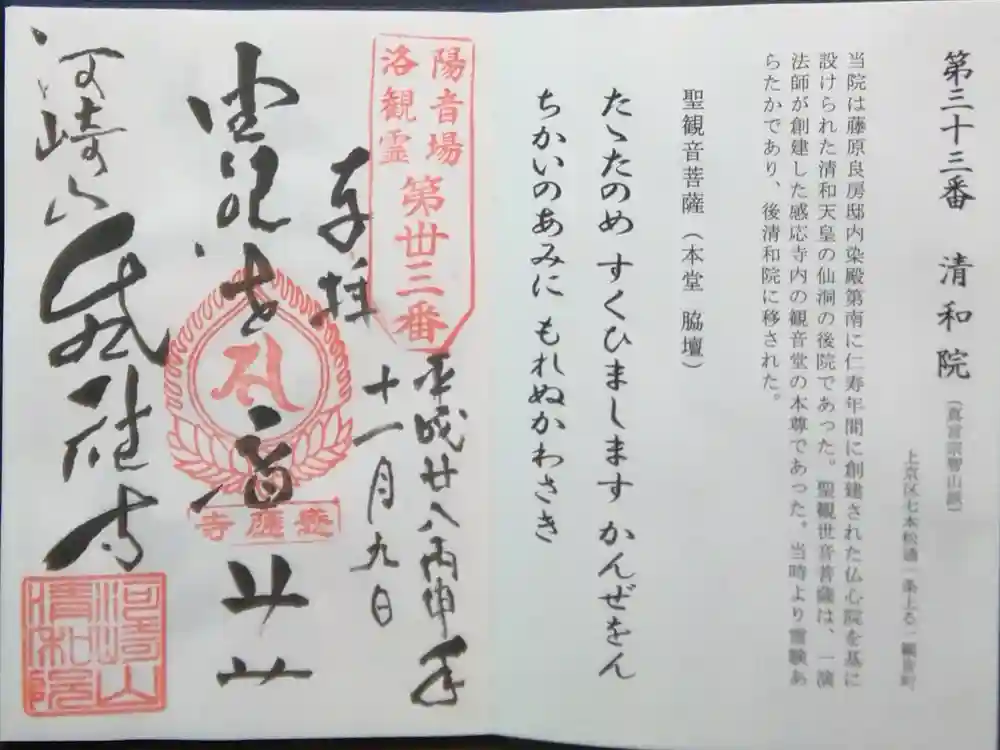 第三十三番 清和院 (真言宗智山派)
上京区七本松通一条上る一観音町
当院は藤原良房邸内染殿第南に仁寿年間に創建された仏心院を基に
設けられた清和天皇の仙洞の後院であった。聖観世音菩薩は、一演
法師が創建した感応寺内の観音堂の本尊であった。当時より霊験あ
らたかであり、後清和院に移された。
聖観音菩薩(本堂 脇壇)
たゝたのめ すくひまします かんぜをん
ちかいのあみに もれぬかわさき
洛陽
観音
霊場
第丗三番
奉拝
平成廿八丙申年
十一月九日
感應寺
河崎山
感應寺
河崎山
清和院